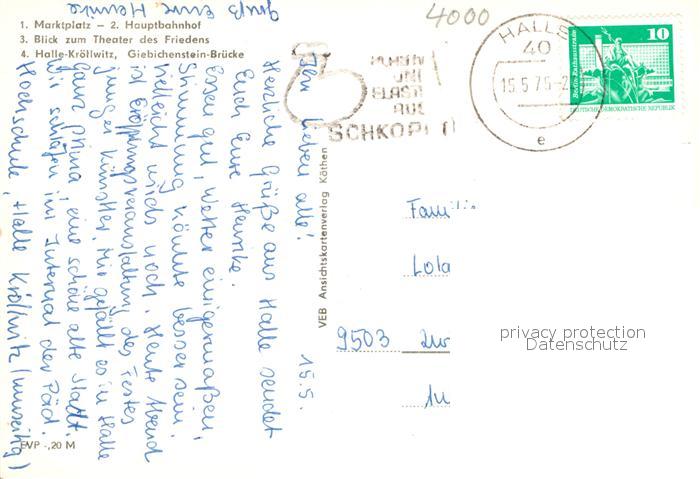 1. Marktplatz — 2. Hauptbahnhof
3. Blick zum Theater des Friedens
4. Halle-Kröllwitz, Giebichenstein-Brücke
4000
HALLE
40
15.5.75-2
e
10
Berlin-Alexanderplatz
DEUTSCHE DEMOKRATISCHE REPUBLIK
UND
AUS
SCHKOPAU
VEB Ansichtskartenverlag Köthen
15.5.
Ihr Lieben alle!
Herzliche Grüße aus Halle sendet
Euch Eure Henrike.
Essen gut, Wetter einigermaßen,
Stimmung könnte besser sein,
vielleicht wird's noch. Heute Abend
ist Eröffnungsveranstaltung des Festes
junger Künstler. Mir gefällt es in Halle
ganz prima, eine schöne alte Stadt.
Wir schlafen im Internat der Päd.
Hochschule, Halle Kröllwitz (umseitig)
Gruß Eure Henrike
Familie
Lola
9503 Zw
EVP -,20 M
privacy protection
Datenschutz